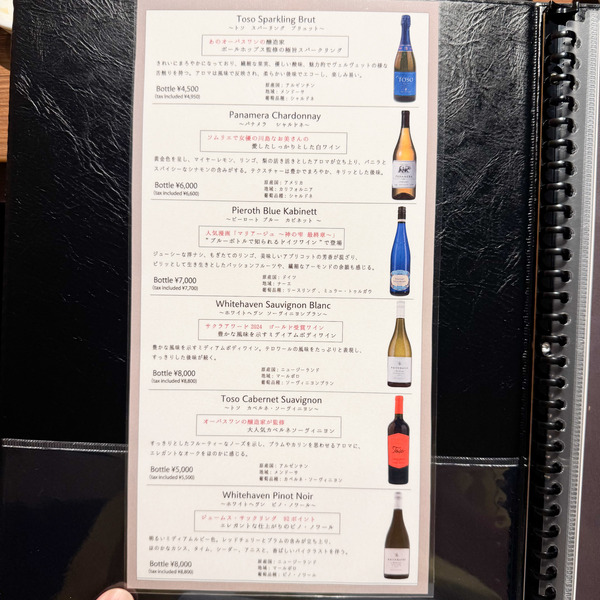 Toso Sparkling Brut
～トソ スパークリング ブリュット～
あのオーパスワンの醸造家
ポールホッブス監修の極旨スパークリング
きれいにまろやかになっており、繊細な果実、優しい酸味、魅力的でヴェルヴェットの様な
舌触りを持つ。アロマは風味で反映され、柔らかい後味でエコーし、楽しみ長い。
Bottle ¥4,500
(tax included ¥4,950)
原産国：アルゼンチン
地域：メンドーサ
葡萄品種：シャルドネ
TOSO
Panamera Chardonnay
～パナメラ シャルドネ～
ソムリエで女優の川島なお美さんの
愛したしっかりとした白ワイン
黄金色を呈し、マイヤーレモン、リンゴ、梨の活き活きとしたアロマが立ち上り、バニラと
スパイシーなシナモンの含みがする。テクスチャーは豊かでまろやか、キリッとした後味。
Bottle ¥6,000
(tax included ¥6,600)
原産国：アメリカ
地域：カリフォルニア
葡萄品種：シャルドネ
Pieroth Blue Kabinett
～ピーロート ブルー カビネット～
人気漫画「マリアージュ ～神の雫 最終章～」
“ブルーボトルで知られるドイツワイン”で登場
ジューシーな洋ナシ、もぎたてのリンゴ、美味しいアプリコットの芳香が混ざり、
ピリッとして生き生きとしたパッションフルーツや、繊細なアーモンドの余韻も感じる。
Bottle ¥7,000
(tax included ¥7,700)
原産国：ドイツ
地域：ナーエ
葡萄品種：リースリング、ミュラー・トゥルガウ
Whitehaven Sauvignon Blanc
～ホワイトヘヴン ソーヴィニヨンブラン～
サクラアワード 2024 ゴールド受賞ワイン
豊かな風味を示すミディアムボディワイン
豊かな風味を示すミディアムボディワイン。テロワールの風味をたっぷりと表現し、
すっきりした後味が続く。
Bottle ¥8,000
(tax included ¥8,800)
原産国：ニュージーランド
地域：マールボロ
葡萄品種：ソーヴィニヨンブラン
Toso Cabernet Suavignon
～トソ カベルネ・ソーヴィニヨン～
オーパスワンの醸造家が監修
大人気カベルネソーヴィニヨン
すっきりとしたフルーティーなノーズを示し、プラムやカリンを思わせるアロマに、
エレガントなオークをほのかに感じる。
Bottle ¥5,000
(tax included ¥5,500)
原産国：アルゼンチン
地域：メンドーサ
葡萄品種：カベルネ・ソーヴィニヨン
Whitehaven Pinot Noir
～ホワイトヘヴン ピノ・ノワール～
ジェームス・サックリング 92ポイント
エレガントな仕上がりのピノ・ノワール
明るいミディアムルビー色。レッドチェリーとプラムの含みが立ち上り、
ほのかなカシス、タイム、シーダー、アニスと、香ばしいパイクラストを伴う。
Bottle ¥8,000
(tax included ¥8,800)
原産国：ニュージーランド
地域：マールボロ
葡萄品種：ピノ・ノワール